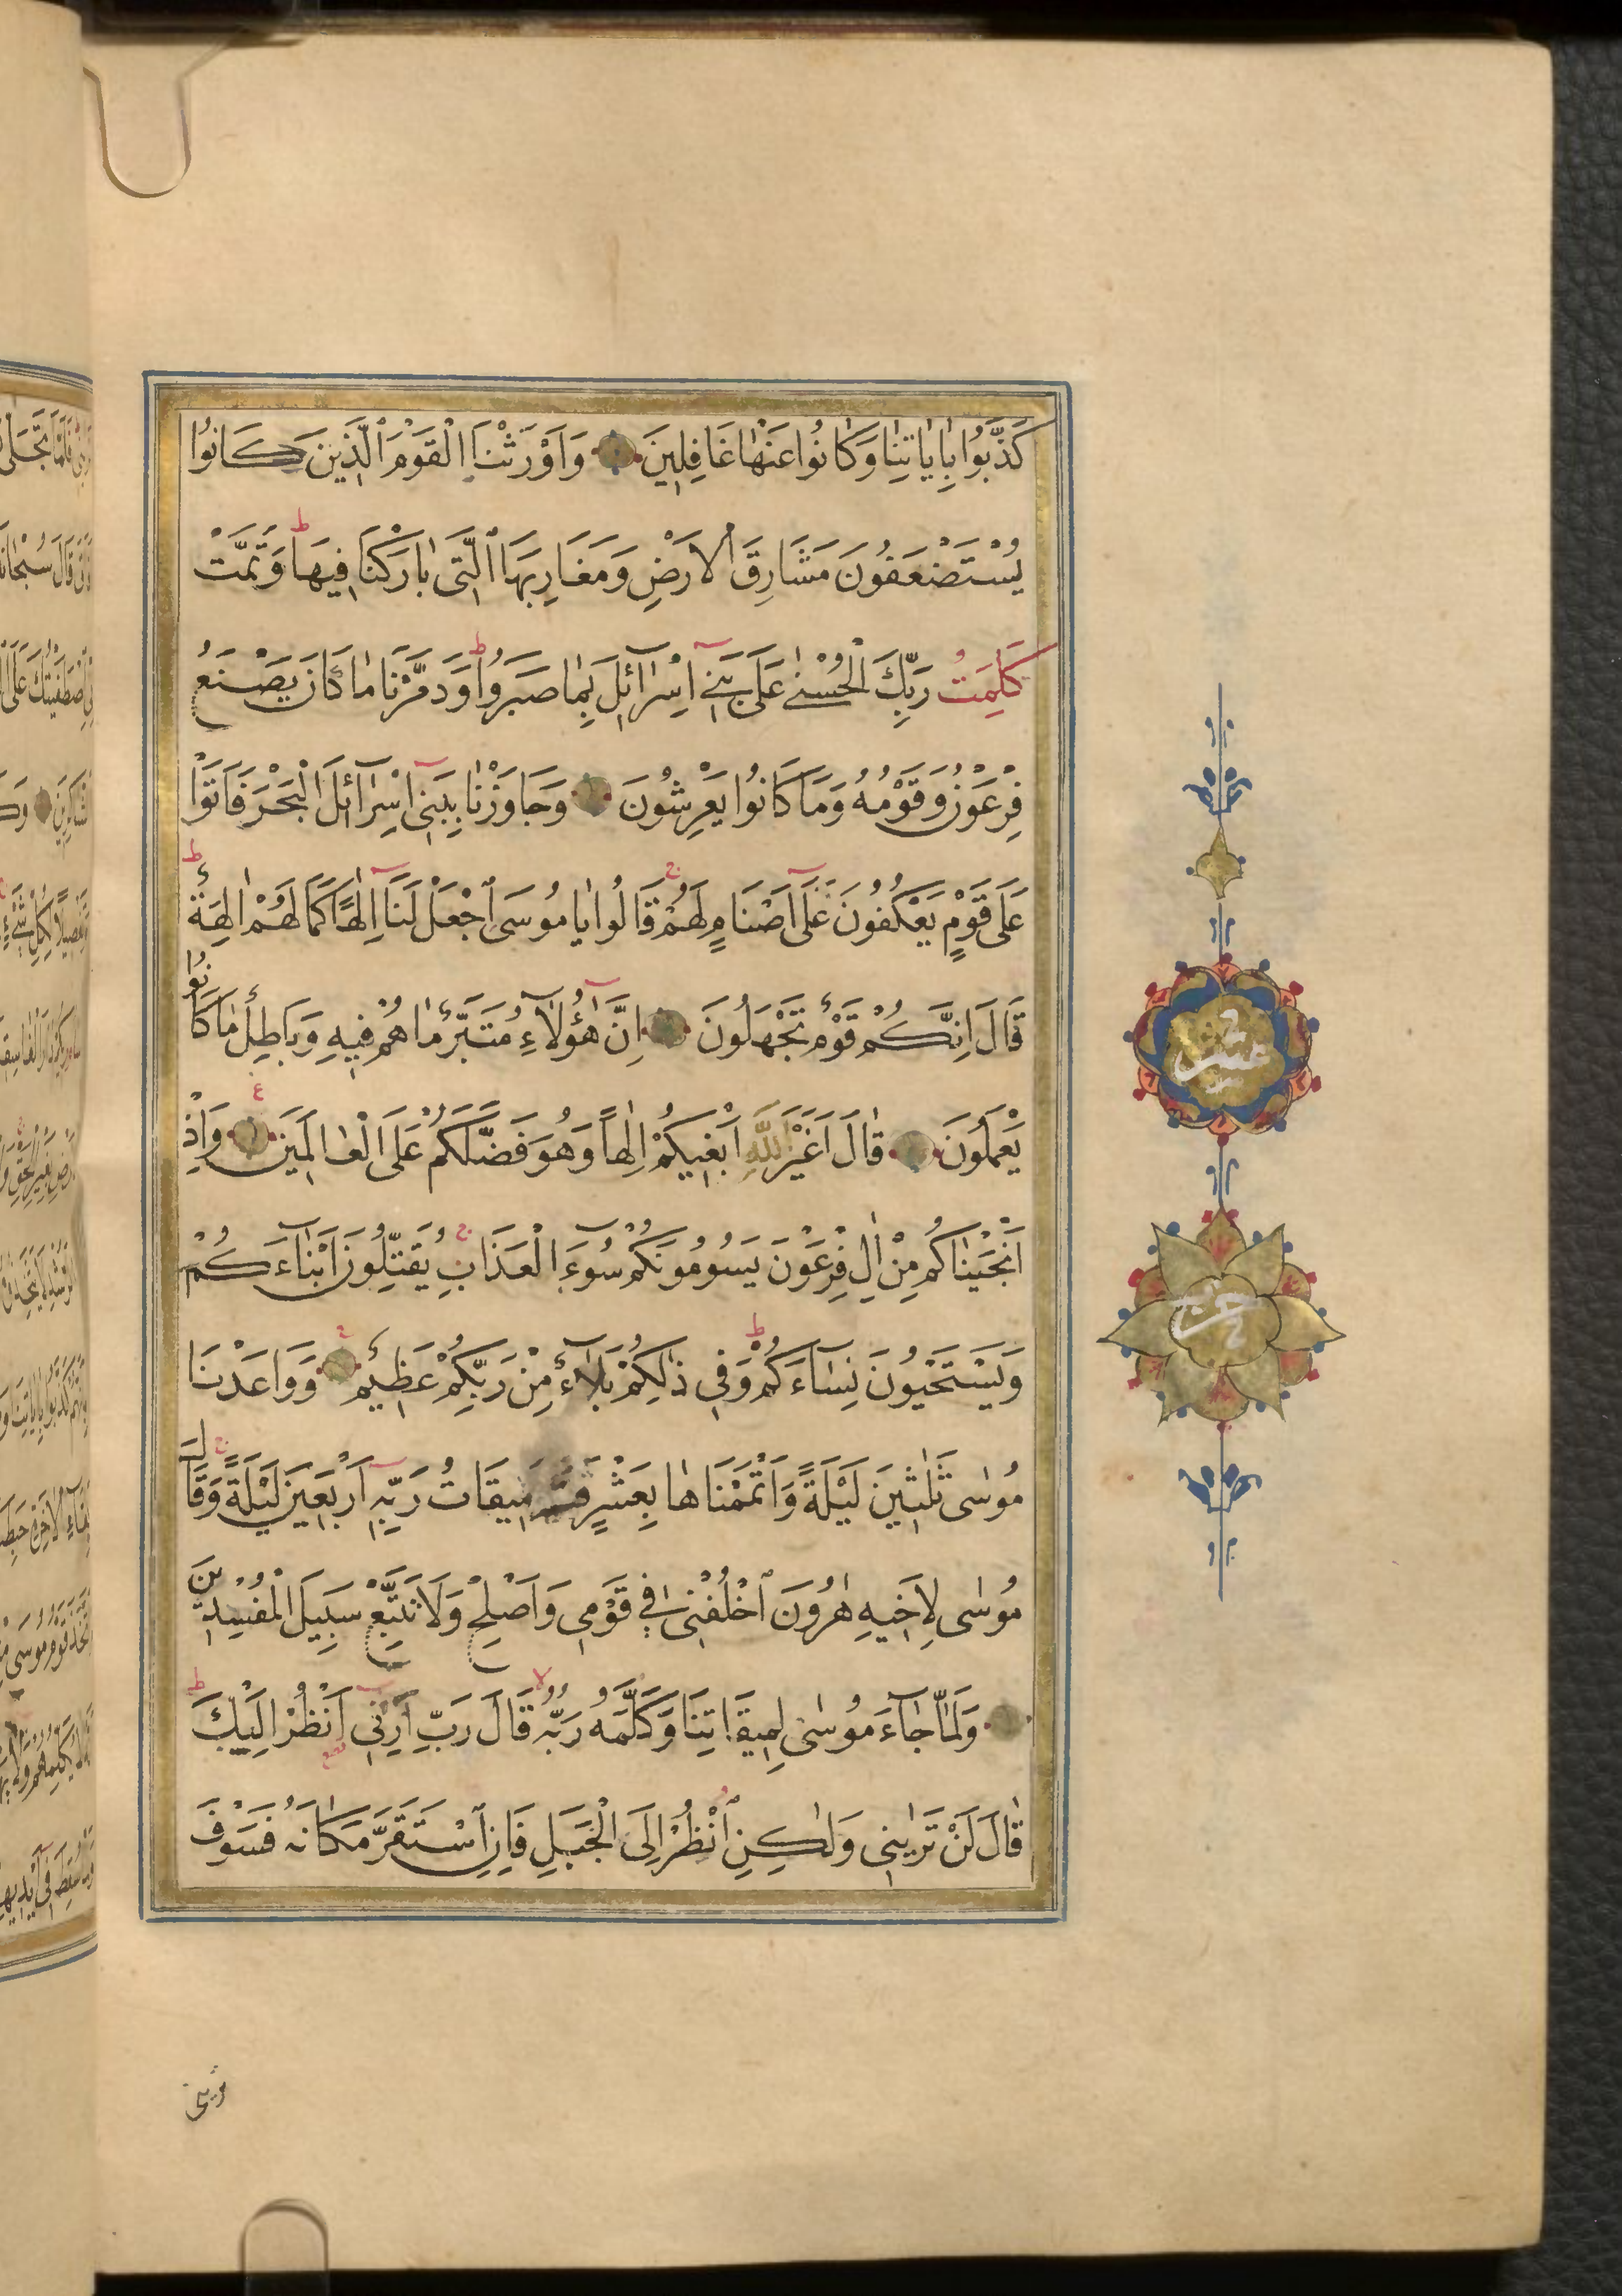 كَذَّبُوا بِاٰيَاتِنَا وَكَانُوا عَنْهَا غَافِلِينَ وَاَوْرَثْنَا الْقَوْمَ الَّذِينَ كَانُوا
يُسْتَضْعَفُونَ مَشَارِقَ الْاَرْضِ وَمَغَارِبَهَا الَّتِى بَارَكْنَا فِيهَا ط وَتَمَّتْ
كَلِمَتُ رَبِّكَ الْحُسْنٰى عَلٰى بَنِٓى اِسْرَٓائِلَ بِمَا صَبَرُوا ط وَدَمَّرْنَا مَا كَانَ يَصْنَعُ
فِرْعَوْنُ وَقَوْمُهُ وَمَا كَانُوا يَعْرِشُونَ وَجَاوَزْنَا بِبَنِٓى اِسْرَٓائِلَ الْبَحْرَ فَاَتَوْا
عَلٰى قَوْمٍ يَعْكُفُونَ عَلٰٓى اَصْنَامٍ لَهُمْ ج قَالُوا يَا مُوسَى اجْعَلْ لَنَٓا اِلٰهًا كَمَا لَهُمْ اٰلِهَةٌ ط
قَالَ اِنَّكُمْ قَوْمٌ تَجْهَلُونَ اِنَّ هٰٓؤُلَٓاءِ مُتَبَّرٌ مَا هُمْ فِيهِ وَبَاطِلٌ مَا كَانُوا
يَعْمَلُونَ قَالَ اَغَيْرَ اللّٰهِ اَبْغِيكُمْ اِلٰهًا وَهُوَ فَضَّلَكُمْ عَلَى الْعَالَمِينَ ع وَاِذْ
اَنْجَيْنَاكُمْ مِنْ اٰلِ فِرْعَوْنَ يَسُومُونَكُمْ سُٓوءَ الْعَذَابِ ج يُقَتِّلُونَ اَبْنَٓاءَكُمْ
وَيَسْتَحْيُونَ نِسَٓاءَكُمْ ط وَفِى ذٰلِكُمْ بَلَٓاءٌ مِنْ رَبِّكُمْ عَظِيمٌ ع وَوَاعَدْنَا
مُوسٰى ثَلٰثِينَ لَيْلَةً وَاَتْمَمْنَاهَا بِعَشْرٍ فَتَمَّ مِيقَاتُ رَبِّهِٓ اَرْبَعِينَ لَيْلَةً ج وَقَالَ
مُوسٰى لِاَخِيهِ هٰرُونَ اخْلُفْنِى فِى قَوْمِى وَاَصْلِحْ وَلَا تَتَّبِعْ سَبِيلَ الْمُفْسِدِينَ
وَلَمَّا جَٓاءَ مُوسٰى لِمِيقَاتِنَا وَكَلَّمَهُ رَبُّهُ لا قَالَ رَبِّ اَرِنِٓى اَنْظُرْ اِلَيْكَ ط
قَالَ لَنْ تَرٰينِى وَلٰكِنِ انْظُرْ اِلَى الْجَبَلِ فَاِنِ اسْتَقَرَّ مَكَانَهُ فَسَوْفَ
ترينى
عشر
حزب